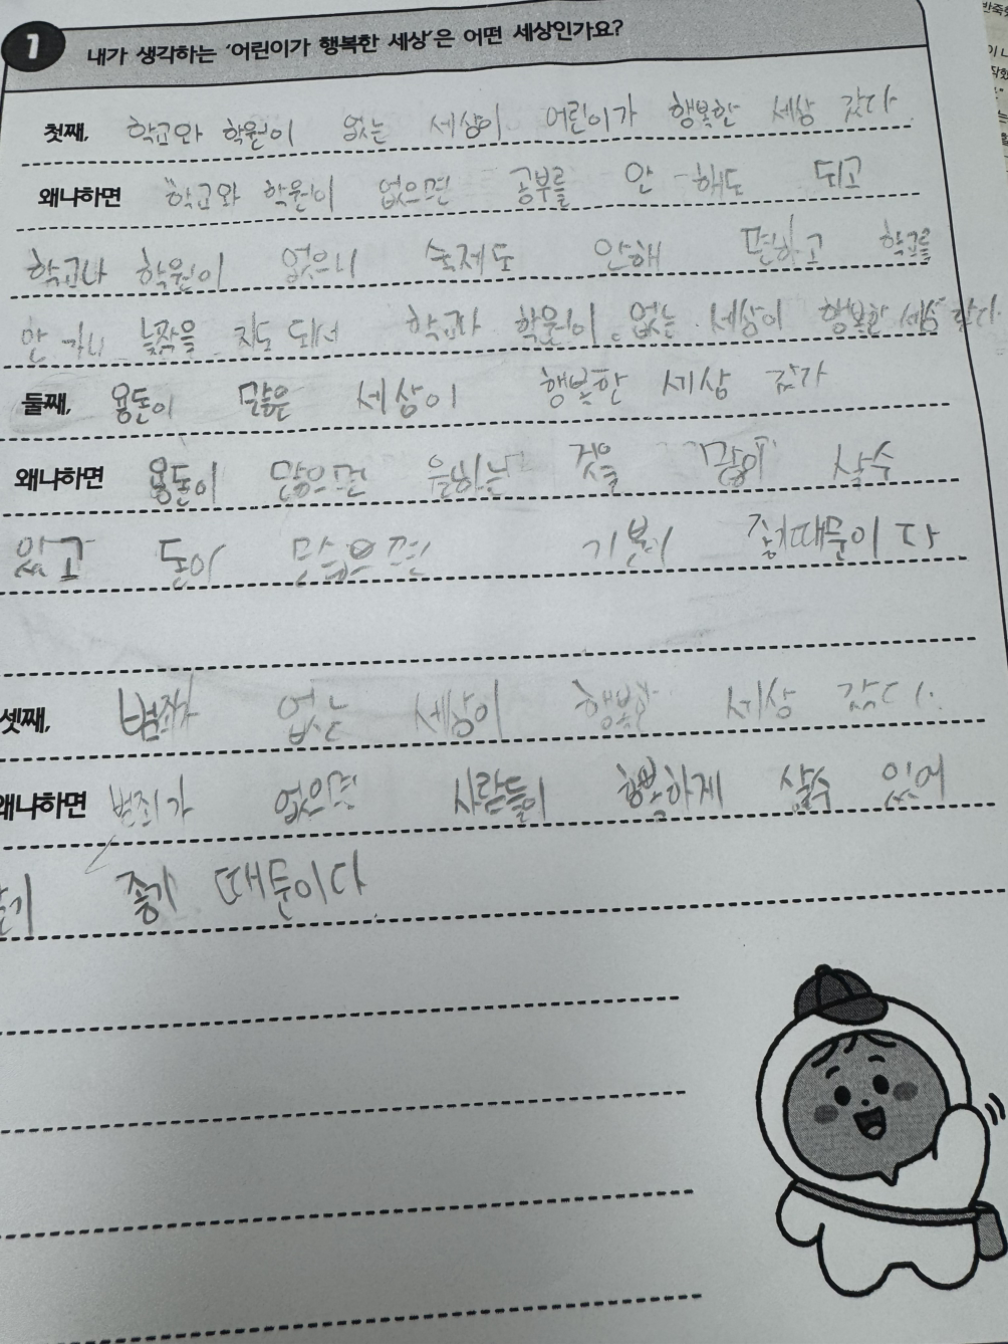 1 내가 생각하는 '어린이가 행복한 세상'은 어떤 세상인가요?
첫째, 학교와 학원이 없는 세상이 어린이가 행복한 세상 같다.
왜냐하면 학교와 학원이 없으면 공부를 안 해도 되고
학교나 학원이 없으니 숙제도 안해 편하고 학교를
안 가니 낮잠을 자도 되서 학교와 학원이 없는 세상이 행복한 세상 같다.
둘째, 용돈이 많은 세상이 행복한 세상 같다
왜냐하면 용돈이 많으면 원하는 것을 많이 살수
있고 돈이 많으면 기분이 좋기때문이다
셋째, 범죄가 없는 세상이 행복한 세상 같다.
왜냐하면 범죄가 없으면 사람들이 행복하게 살수 있어
좋기 때문이다.